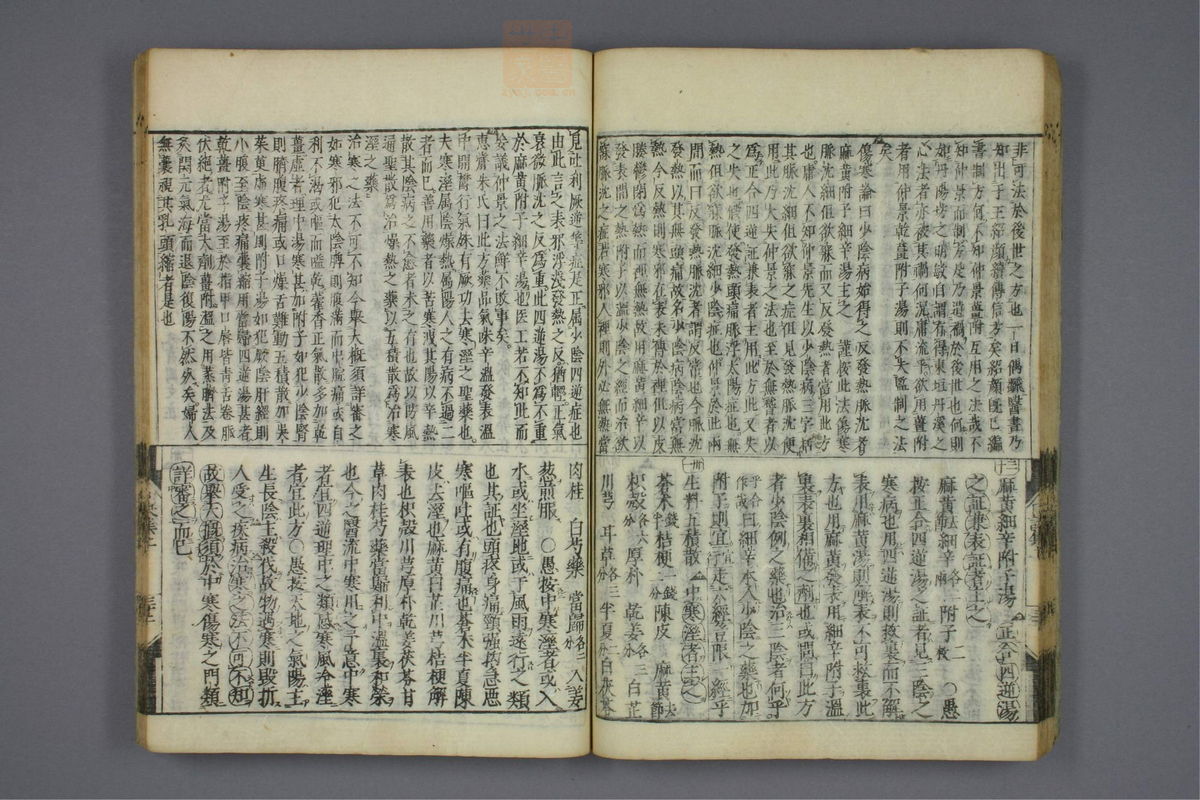 非可法於後世之方也一日偶
知出于王紹顔續傳信方矣紹顔既已漏
書制方何不知仲景薑附互用之法哉不
知仲景而制方是乃造禍於後世也何則
如丹陽坊之明敏自謂有得東垣丹溪之
心法者亦彼其謂詞何況庸流乎欲用薑附
者用仲景乾薑附子湯則不失監制之法
矣
傷寒論曰少陰病始得之反發熱脈沈者
麻黄附子細辛湯主之 謹按此法傷寒
脈沈細但欲寐而又反發熱者當用此方
也庸人不知仲景先生以少陰病三字折
其脈沈細但欲寐之症徂見發熱脈沈便
用此方大失仲景之法也至於無稽者以
為正合四逆兼表者主用此方此又失
之失也假使發熱頭痛脈浮太陽症也無
熱但欲寐脈沈細少陰症也仲景於此兩
間而曰反發熱脈沈者謂反常也今寒邪在
發熱以其無頭痛故名少陰病陰病當無
熱今反熱則寒邪在表未傳於裡但以皮
腠鬱閉為熱而裡無熱故用麻黄細辛以
發表間之熱附子以溫少陰之經而治欲
寐脈沈之症若寒邪入裡則外必無熱當
麻黄細辛附子湯 正合四逆湯
之証兼表証者主之
麻黄 細辛各一 附子二 〇愚
按正合四逆湯之証者是三陰之
寒病也用四逆湯則救裏而不解
表用麻黄湯則解表不可救裏此
方也用麻黄發表用細辛附子溫
裏表裏相備之劑也或問曰此方
者少陰例之藥也治三陰者何乎
予合曰細辛本入少陰之藥也加
附子則宜行走六經豈限一經乎
生料五積散 中寒溼者主之
蒼朮 桔梗一錢 陳皮 麻黄去節
枳殻各六分 厚朴 乾姜各三 白芷
川芎 甘草各三 半夏一 白茯苓
見吐利厥逆等症是正屬少陰四逆症也
由此言之表邪浮淺發熱之反猶輕正氣
衰微脈沈之反為重此四逆湯不為不重
於麻黄附子細辛湯也医工者不知此而
妄議仲景之法鮮不敗事矣
惠齋朱氏曰此方藥品氣味辛溫發表溫
中開鬱行氣殊有厥功去寒溼之聖藥也
夫寒溼屬陰燥熱屬陽人之有病不過二
者而已善用藥者以苦寒瀉其陽以辛熱
散其陰病之不愈者未之有也故以防風
通聖散為治燥熱之藥以五積散為治寒
溼之藥
治寒之法不可不知今舉大概須詳審之
如寒邪犯太陰脾則腹滿而中脘痛或自
利不渴或嘔而噎乾藿香正氣散多加乾
薑虛者理中湯寒甚加附子如犯少陰腎
則臍腹疼痛或口燥舌難動五積散加吳
茱萸虛寒甚則附子湯如犯厥陰肝經則
小腹至陰疼痛囊縮用當歸四逆湯甚者
乾薑附辛湯至於指甲口唇皆青舌卷脈
伏絕者尤當大劑薑附溫之用蒸臍法及
灸関元氣海而退陰復陽不然必矣婦人
無囊視其乳頭縮者是也
肉桂 白芍藥 當歸各二分 入姜
葱煎服 〇愚按中寒溼者或入
水或坐溼地或于風雨遠行之類
也其証也頭疼身痛頸強拘急悪
寒嘔吐或有腹痛也蒼朮半夏陳
皮去溼也麻黄白芷川芎桔梗解
表也枳殻川芎厚朴乾姜茯苓甘
草肉桂芍藥當歸和中溫裏和榮
也今之醫流中寒用之予意中寒
者宜四逆理中之類感寒風冷溼
者宜此方〇愚按天地之氣陽主
生長陰主殺伐故物遇寒則毀折
人受之疾病治寒之法不可不知
故舉大概須於中寒傷寒之門類
詳審之而已